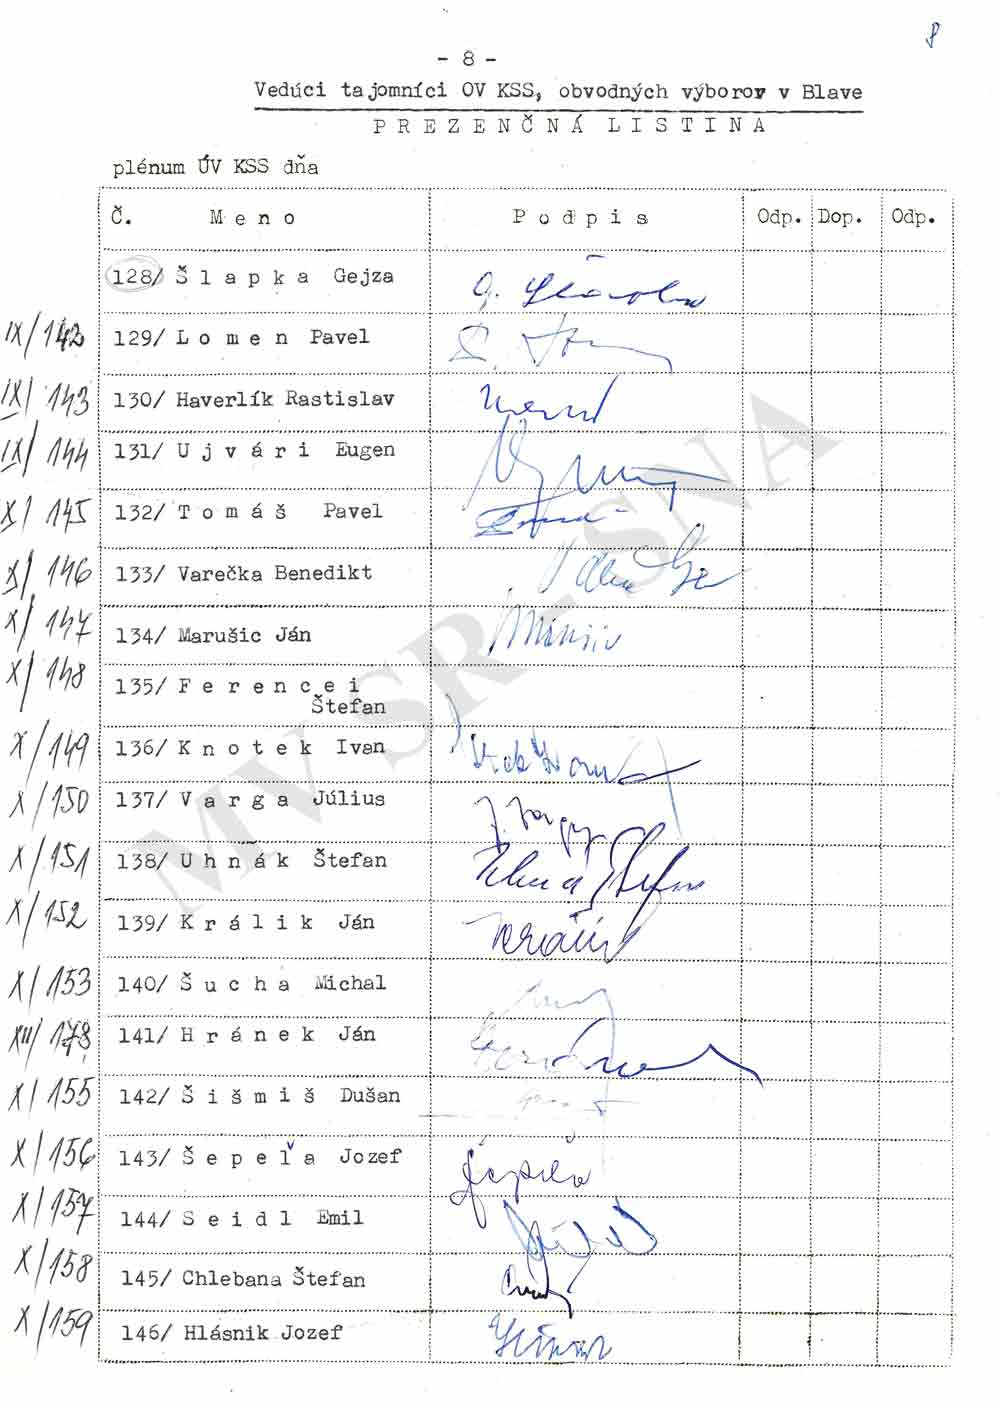 8
- 8 -
Vedúci tajomníci OV KSS, obvodných výborov v Blave
PREZENČNÁ LISTINA
plénum ÚV KSS dňa
Č. Meno Podpis Odp. Dop. Odp.
128/ Šlapka Gejza
IX/142 129/ Lomen Pavel
IX/143 130/ Haverlík Rastislav
IX/144 131/ Ujvári Eugen
X/145 132/ Tomáš Pavel
X/146 133/ Varečka Benedikt
X/147 134/ Marušic Ján
X/148 135/ Ferencei
Štefan
X/149 136/ Knotek Ivan
X/150 137/ Varga Július
X/151 138/ Uhnák Štefan
X/152 139/ Králik Ján
X/153 140/ Šucha Michal
XII/178 141/ Hránek Ján
X/155 142/ Šišmiš Dušan
X/156 143/ Šepeľa Jozef
X/157 144/ Seidl Emil
X/158 145/ Chlebana Štefan
X/159 146/ Hlásnik Jozef
MV SR - SNA